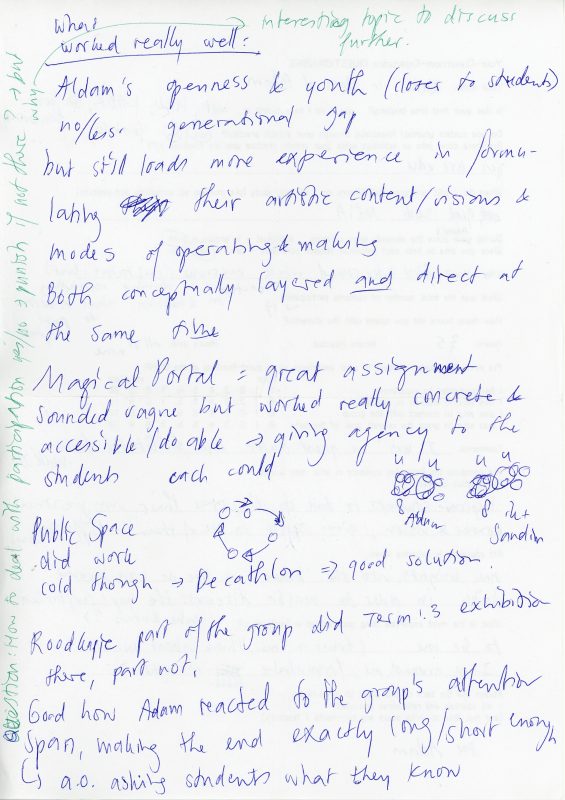 What
worked really well:
→ interesting topic to discuss
further.
Aldam's openness & youth (closer to students)
no/less generational gap
but still loads more experience in formu-
lating their artistic content/visions &
modes of operating & making
Both conceptually layered and direct at
the same time
Magical Portal = great assignment
sounded vague but worked really concrete &
accessible/do able → giving agency to the
students each could
u u u u
8 Adam
8 ik +
Sandim
Public Space
did work
cold though → Decathlon → good solution.
part of the group did Term 3 exhibition
there, part not.
Good how Adam reacted to the group's attention
span, making the end exactly long/short enough
↳ a.o. asking students what they know
Question: How to deal with participation yes/no → punish if not there? → but
why